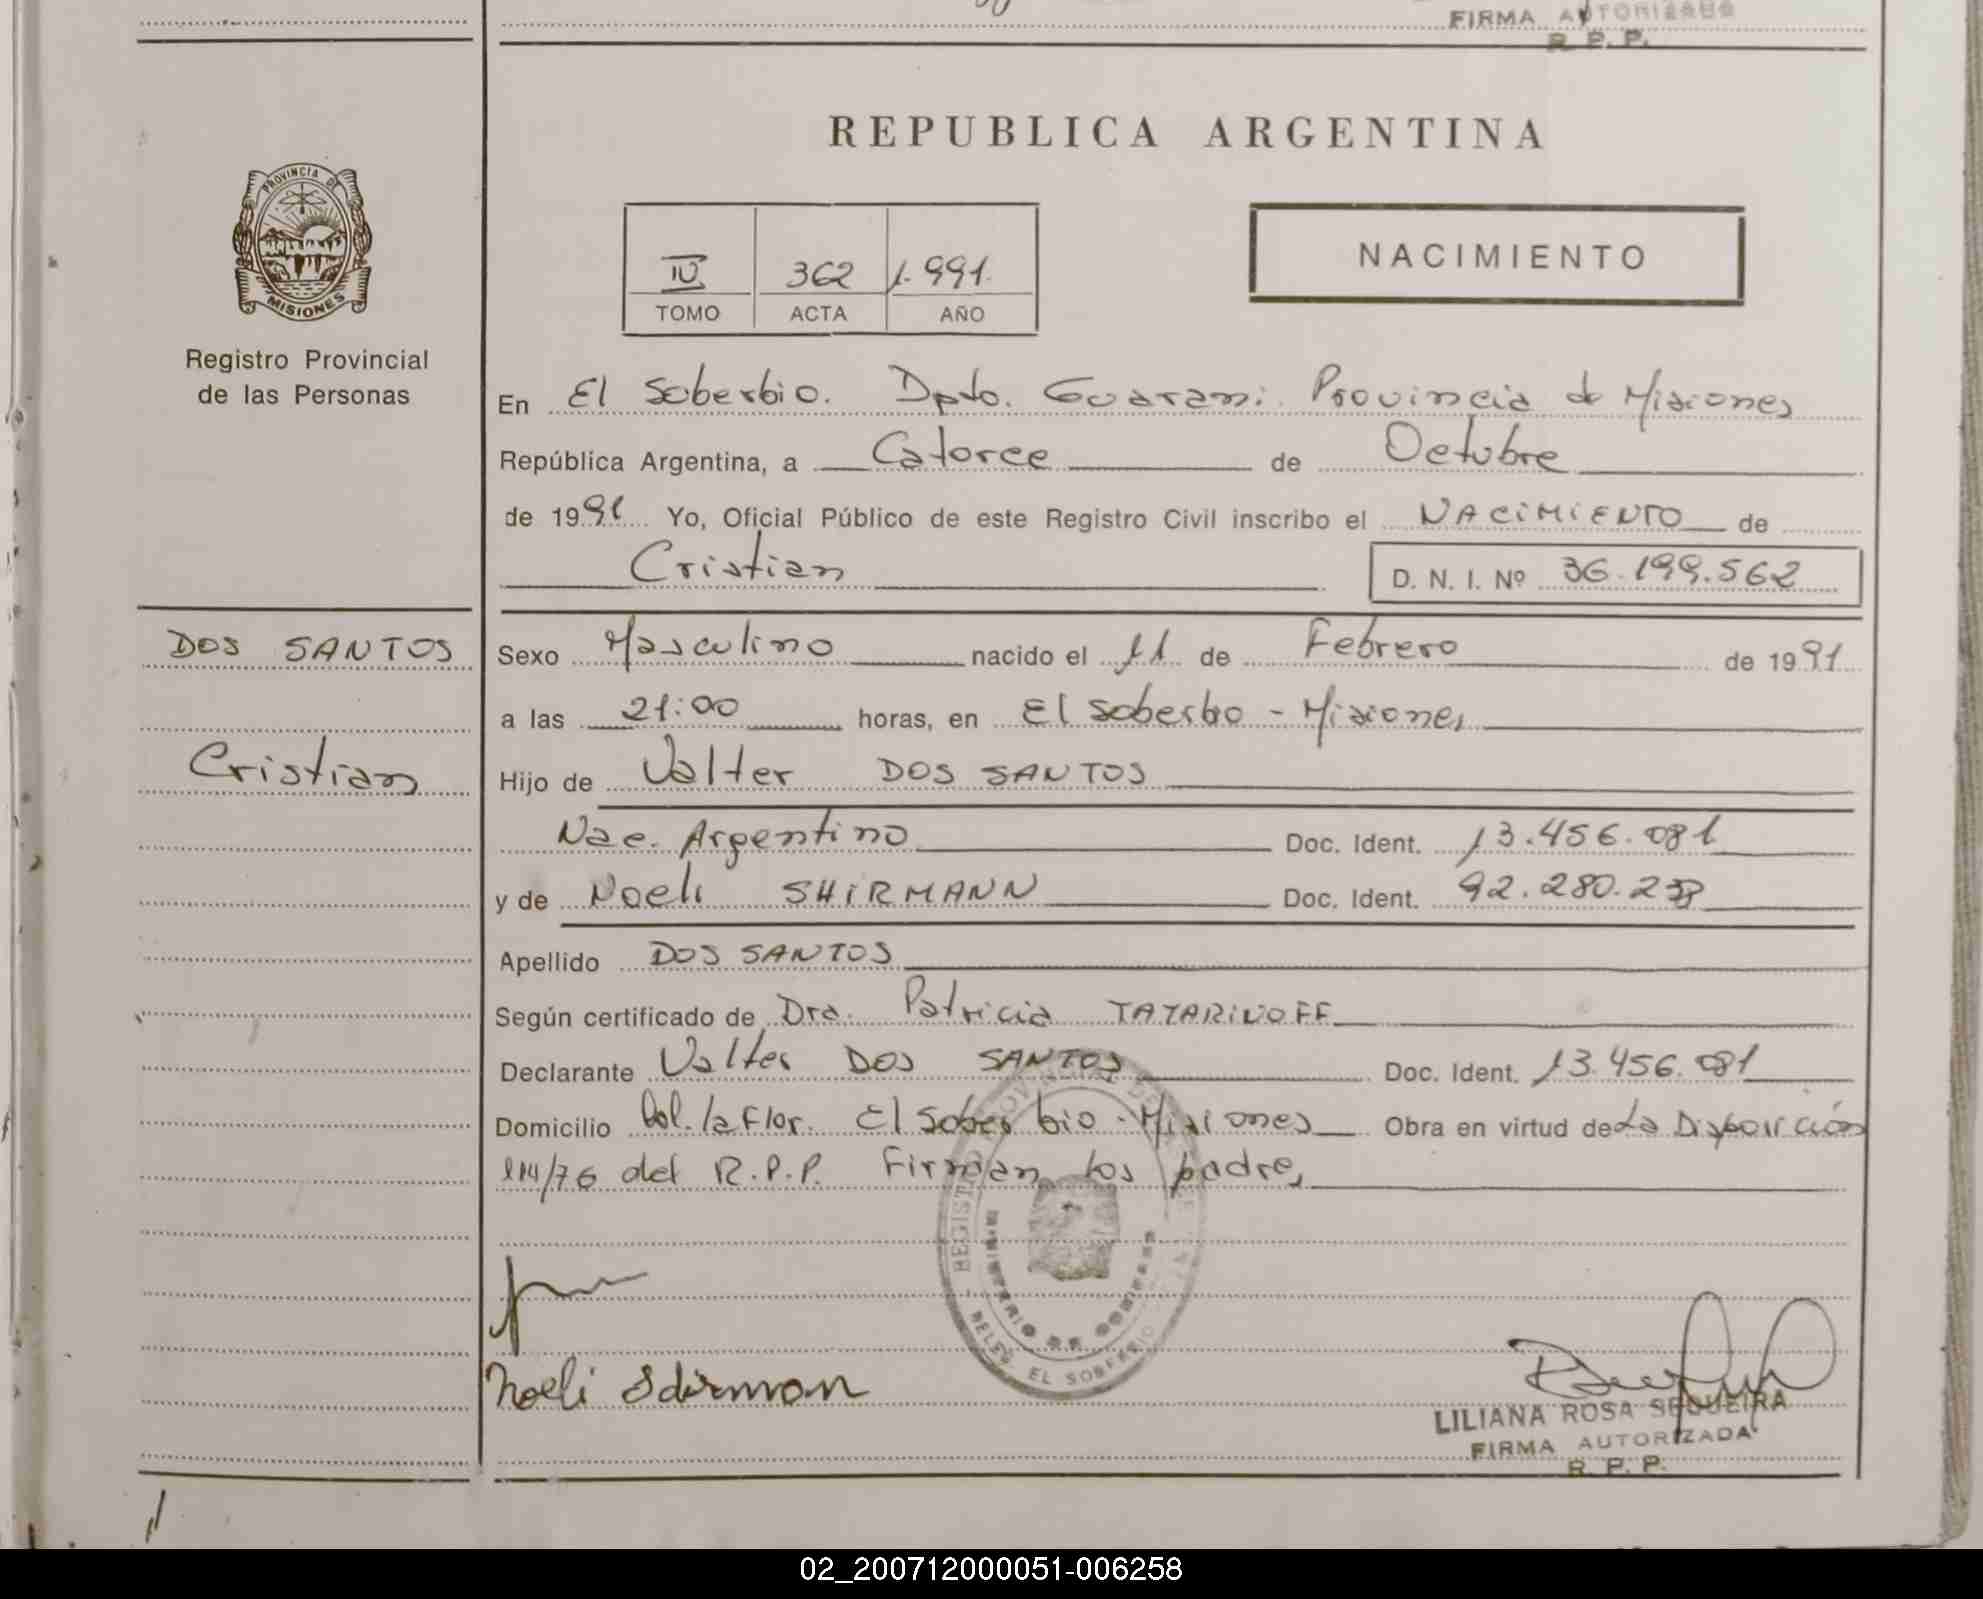 FIRMA AUTORIZADA
R. P. P.
REPUBLICA ARGENTINA
PROVINCIA DE
MISIONES
Registro Provincial
de las Personas
IV 362 1.991
TOMO ACTA AÑO
NACIMIENTO
En El Soberbio. Dpto. Guarani. Provincia de Misiones
República Argentina, a Catorce de Octubre
de 1991 Yo, Oficial Público de este Registro Civil inscribo el NACIMIENTO de
Cristian D. N. I. Nº 36.199.562
DOS SANTOS
Cristian
Sexo Masculino nacido el 11 de Febrero de 1991
a las 21:00 horas, en El Soberbio - Misiones
Hijo de Valter DOS SANTOS
Nac. Argentino Doc. Ident. 13.456.081
y de Noeli SHIRMANN Doc. Ident. 92.280.2
Apellido DOS SANTOS
Según certificado de Dra. Patricia TATARINOFF
Declarante Valter DOS SANTOS Doc. Ident. 13.456.081
Domicilio Col. la Flor. El Soberbio - Misiones Obra en virtud de La Disposición
114/76 del R.P.P. Firman los padres
REGISTRO PROVINCIAL DE
MINISTERIO DE GOBIERNO
EL SOBERBIO
Noeli Schirmann
LILIANA ROSA SEQUEIRA
FIRMA AUTORIZADA
R. P. P.
02_200712000051-006258